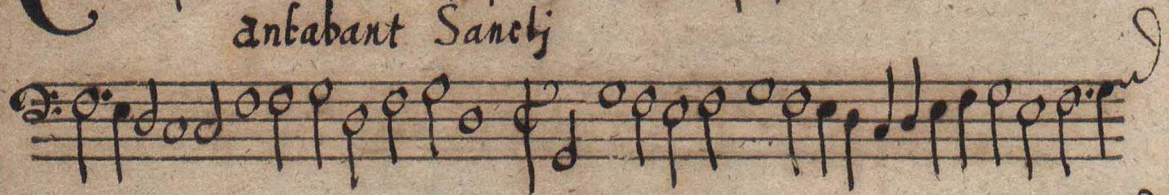 antabant Sanctj